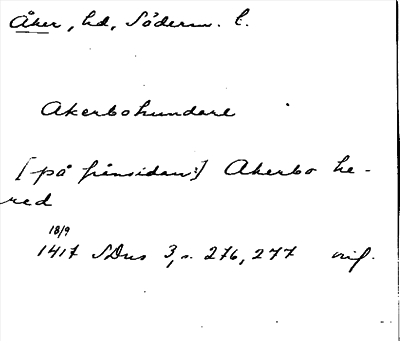 Åker, hd, Söderm. l.
Akerbohundare
[på frånsidan:] Akerbo he-
red
18/9
1417 SDns 3, s. 276, 277 orig.